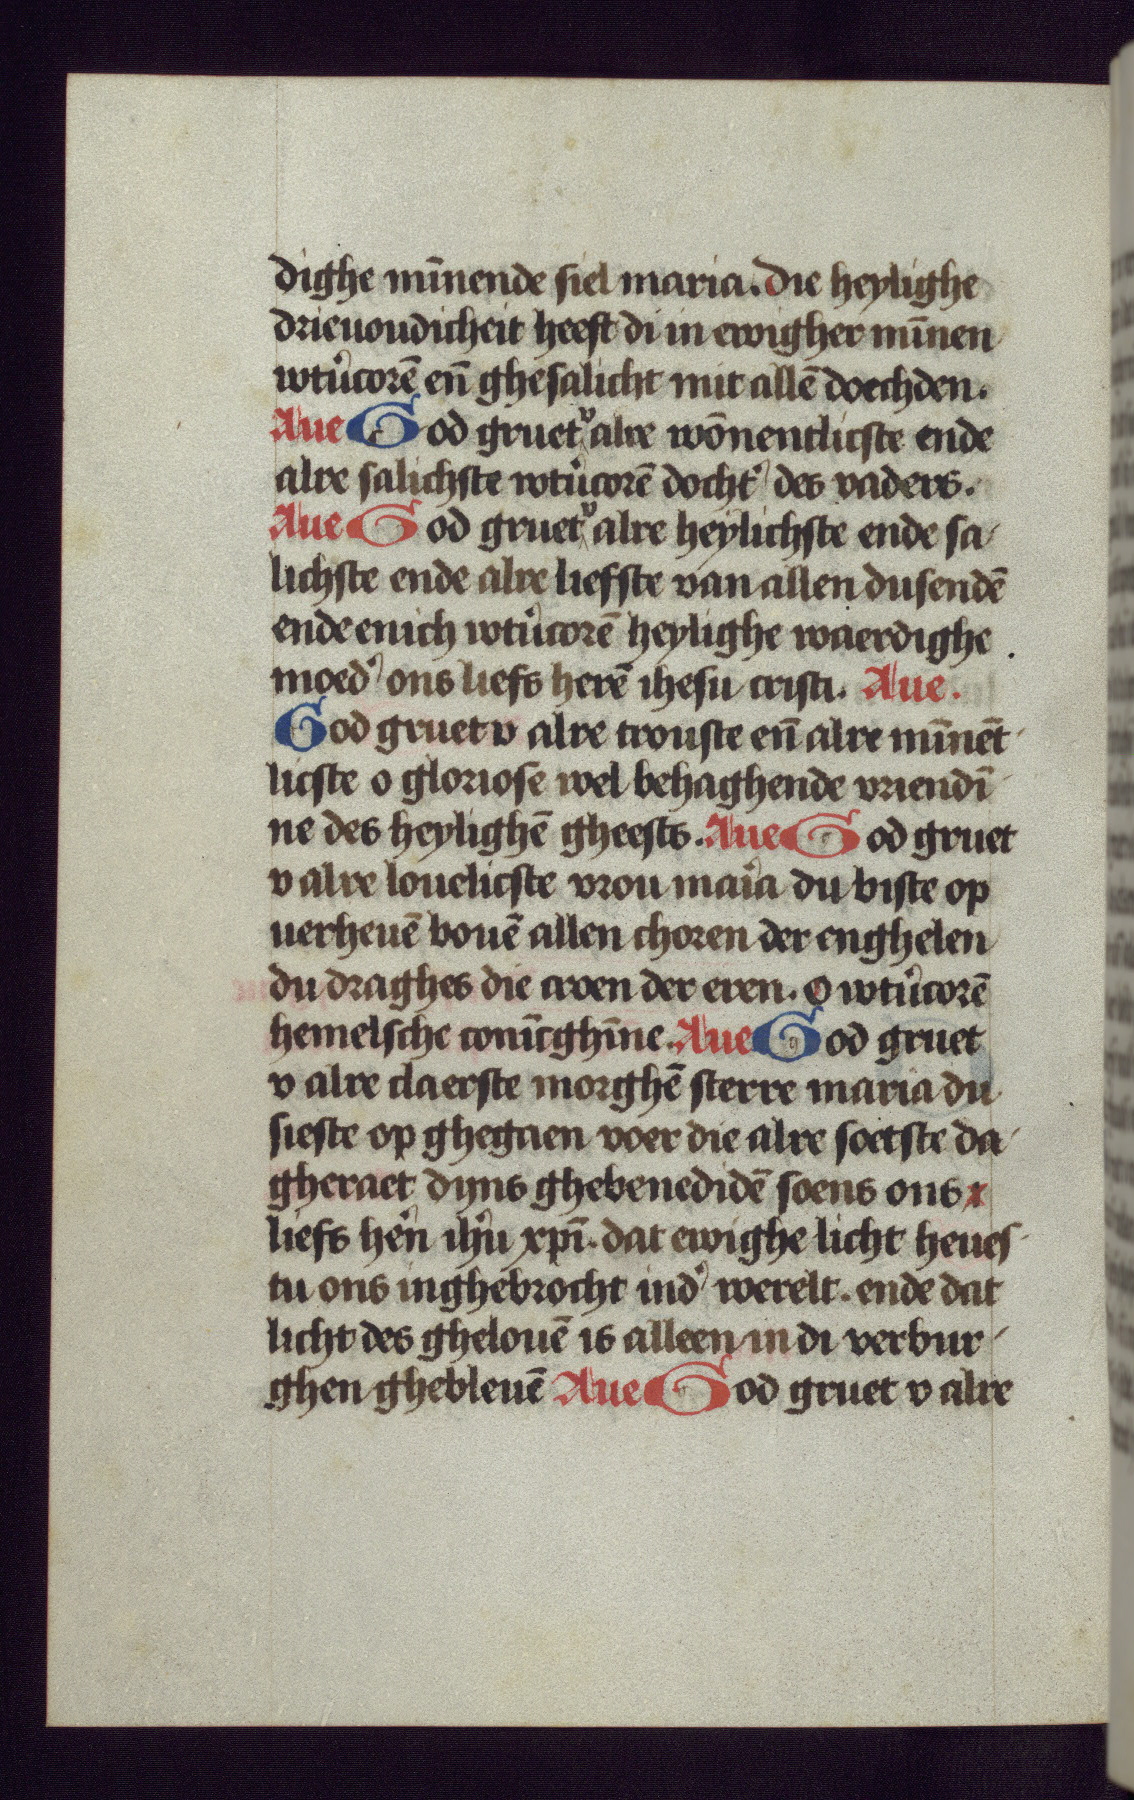 dighe mīnende siel maria. Die heylighe
drieuoudicheit heeft di in ewigher mīnen
wtůcorē en̄ ghesalicht mit allē doechden.
Aue God gruet v alre wōnentlicste ende
alre salichste wtůcorē docht' des vaders.
Aue God gruet v alre heylichste ende sa-
lichste ende alre liefste van allen dusendē
ende enich wtůcorē heylighe waerdighe
moed' ons liefs herē ihesu cristi. Aue.
God gruet v alre trouste en̄ alre mīnēt-
licste o gloriose wel behaghende vriendī-
ne des heylighē gheests. Aue God gruet
v alre louelicste vrou maria du biste op
verheuē bouē allen choren der enghelen
du draghes die croen der eren. O wtůcorē
hemelsche conīcghīne. Aue God gruet
v alre claerste morghē sterre maria du
sieste op ghegaen voer die alre soetste da-
gheraet dyns ghebenedidē soens ons
liefs hēn ihū xpī. dat ewighe licht heues-
tu ons inghebrocht ind' werelt. ende dat
licht des ghelouē is alleen in di verbur-
ghen ghebleuē Aue God gruet v alre